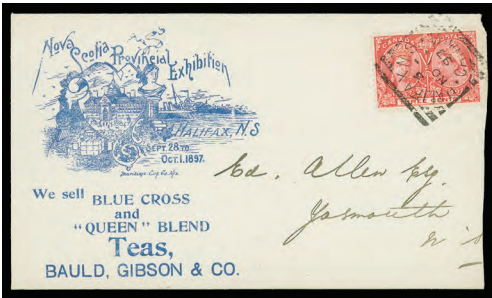 Nova Scotia Provincial Exhibition
HALIFAX, N.S
SEPT. 28 TO
OCT. 1. 1897.
We sell BLUE CROSS
and
"QUEEN" BLEND
Teas,
BAULD, GIBSON & CO.
CANADA POSTAGE
Ed. Allen Esq.
Yarmouth
N S